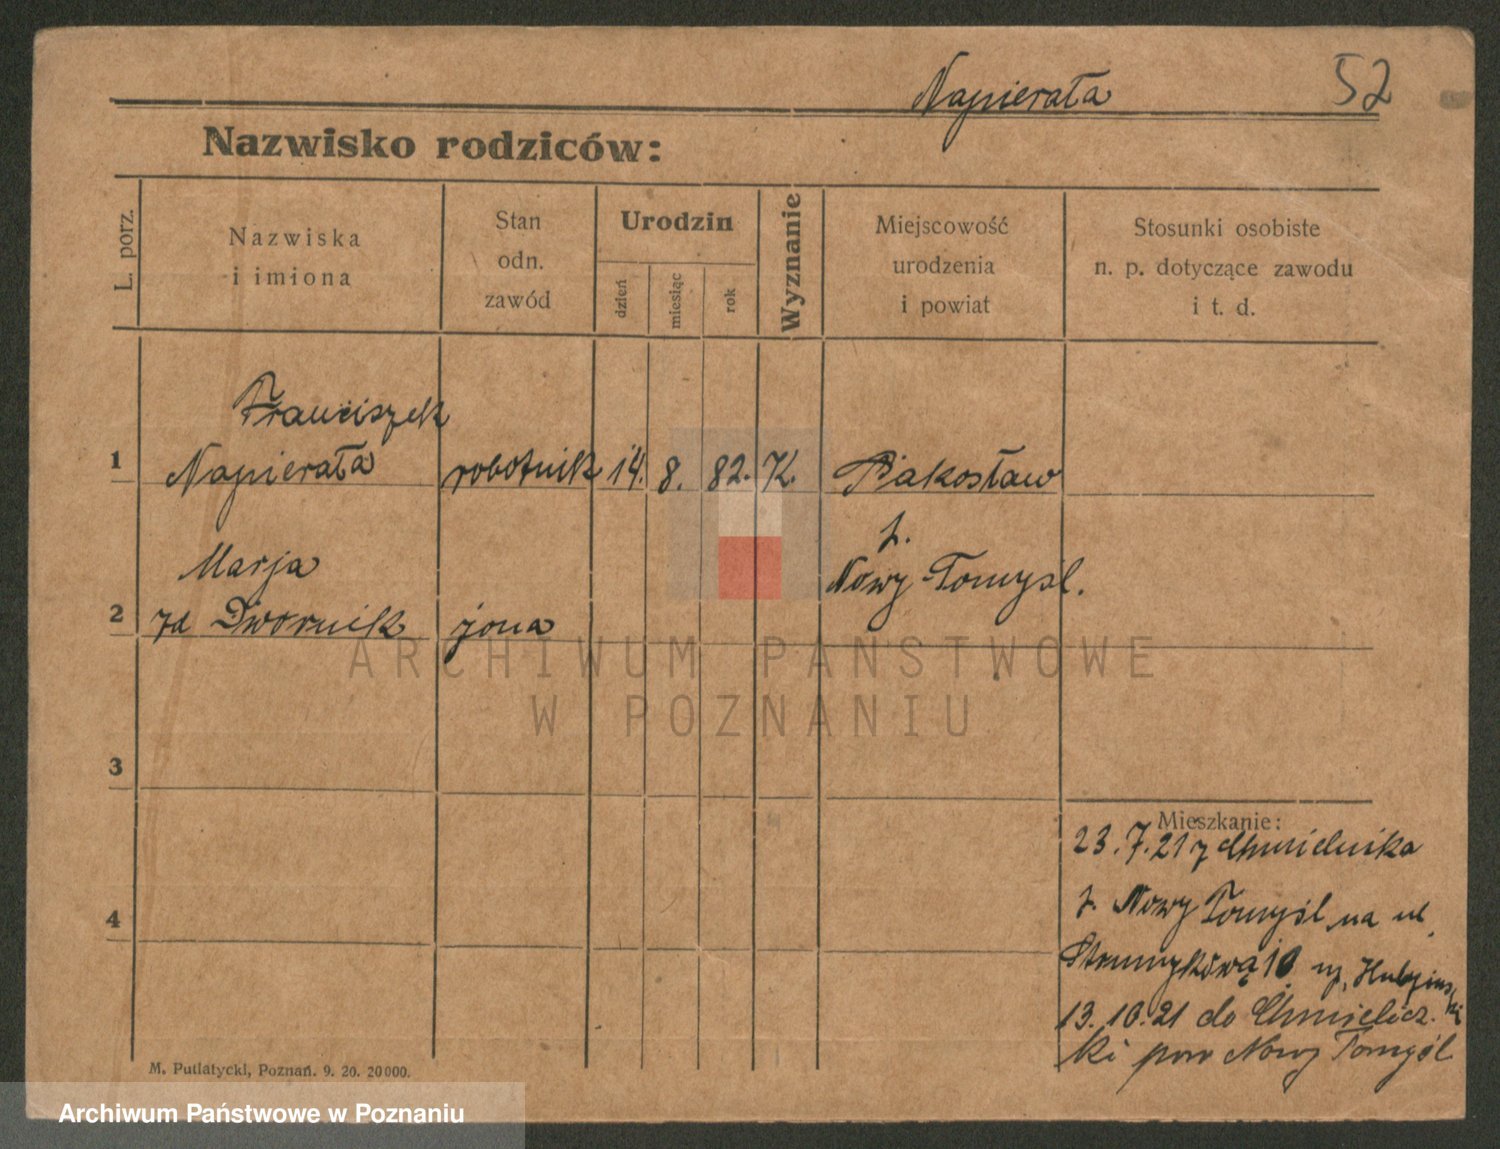 Napierała 52
Nazwisko rodziców:
L. porz.
Nazwiska
i imiona
Stan
odn.
zawód
Urodzin
dzień
miesiąc
rok
Wyznanie
Miejscowość
urodzenia
i powiat
Stosunki osobiste
n. p. dotyczące zawodu
i t. d.
Franciszek
1 Napierała robotnik 14. 8. 82. K.
p.
Nowy Tomysl.
Marja
2 zd Dwornik żona
3
4
Mieszkanie:
23.7.21 z Chmielnika
p. Nowy Tomyśl na ul.
Strumykową 10
13.10.21 do Chmielicz.
ki pow Nowy Tomyśl
M. Putiatycki, Poznań. 9. 20. 20000.
ARCHIWUM PAŃSTWOWE
W POZNANIU
Archiwum Państwowe w Poznaniu